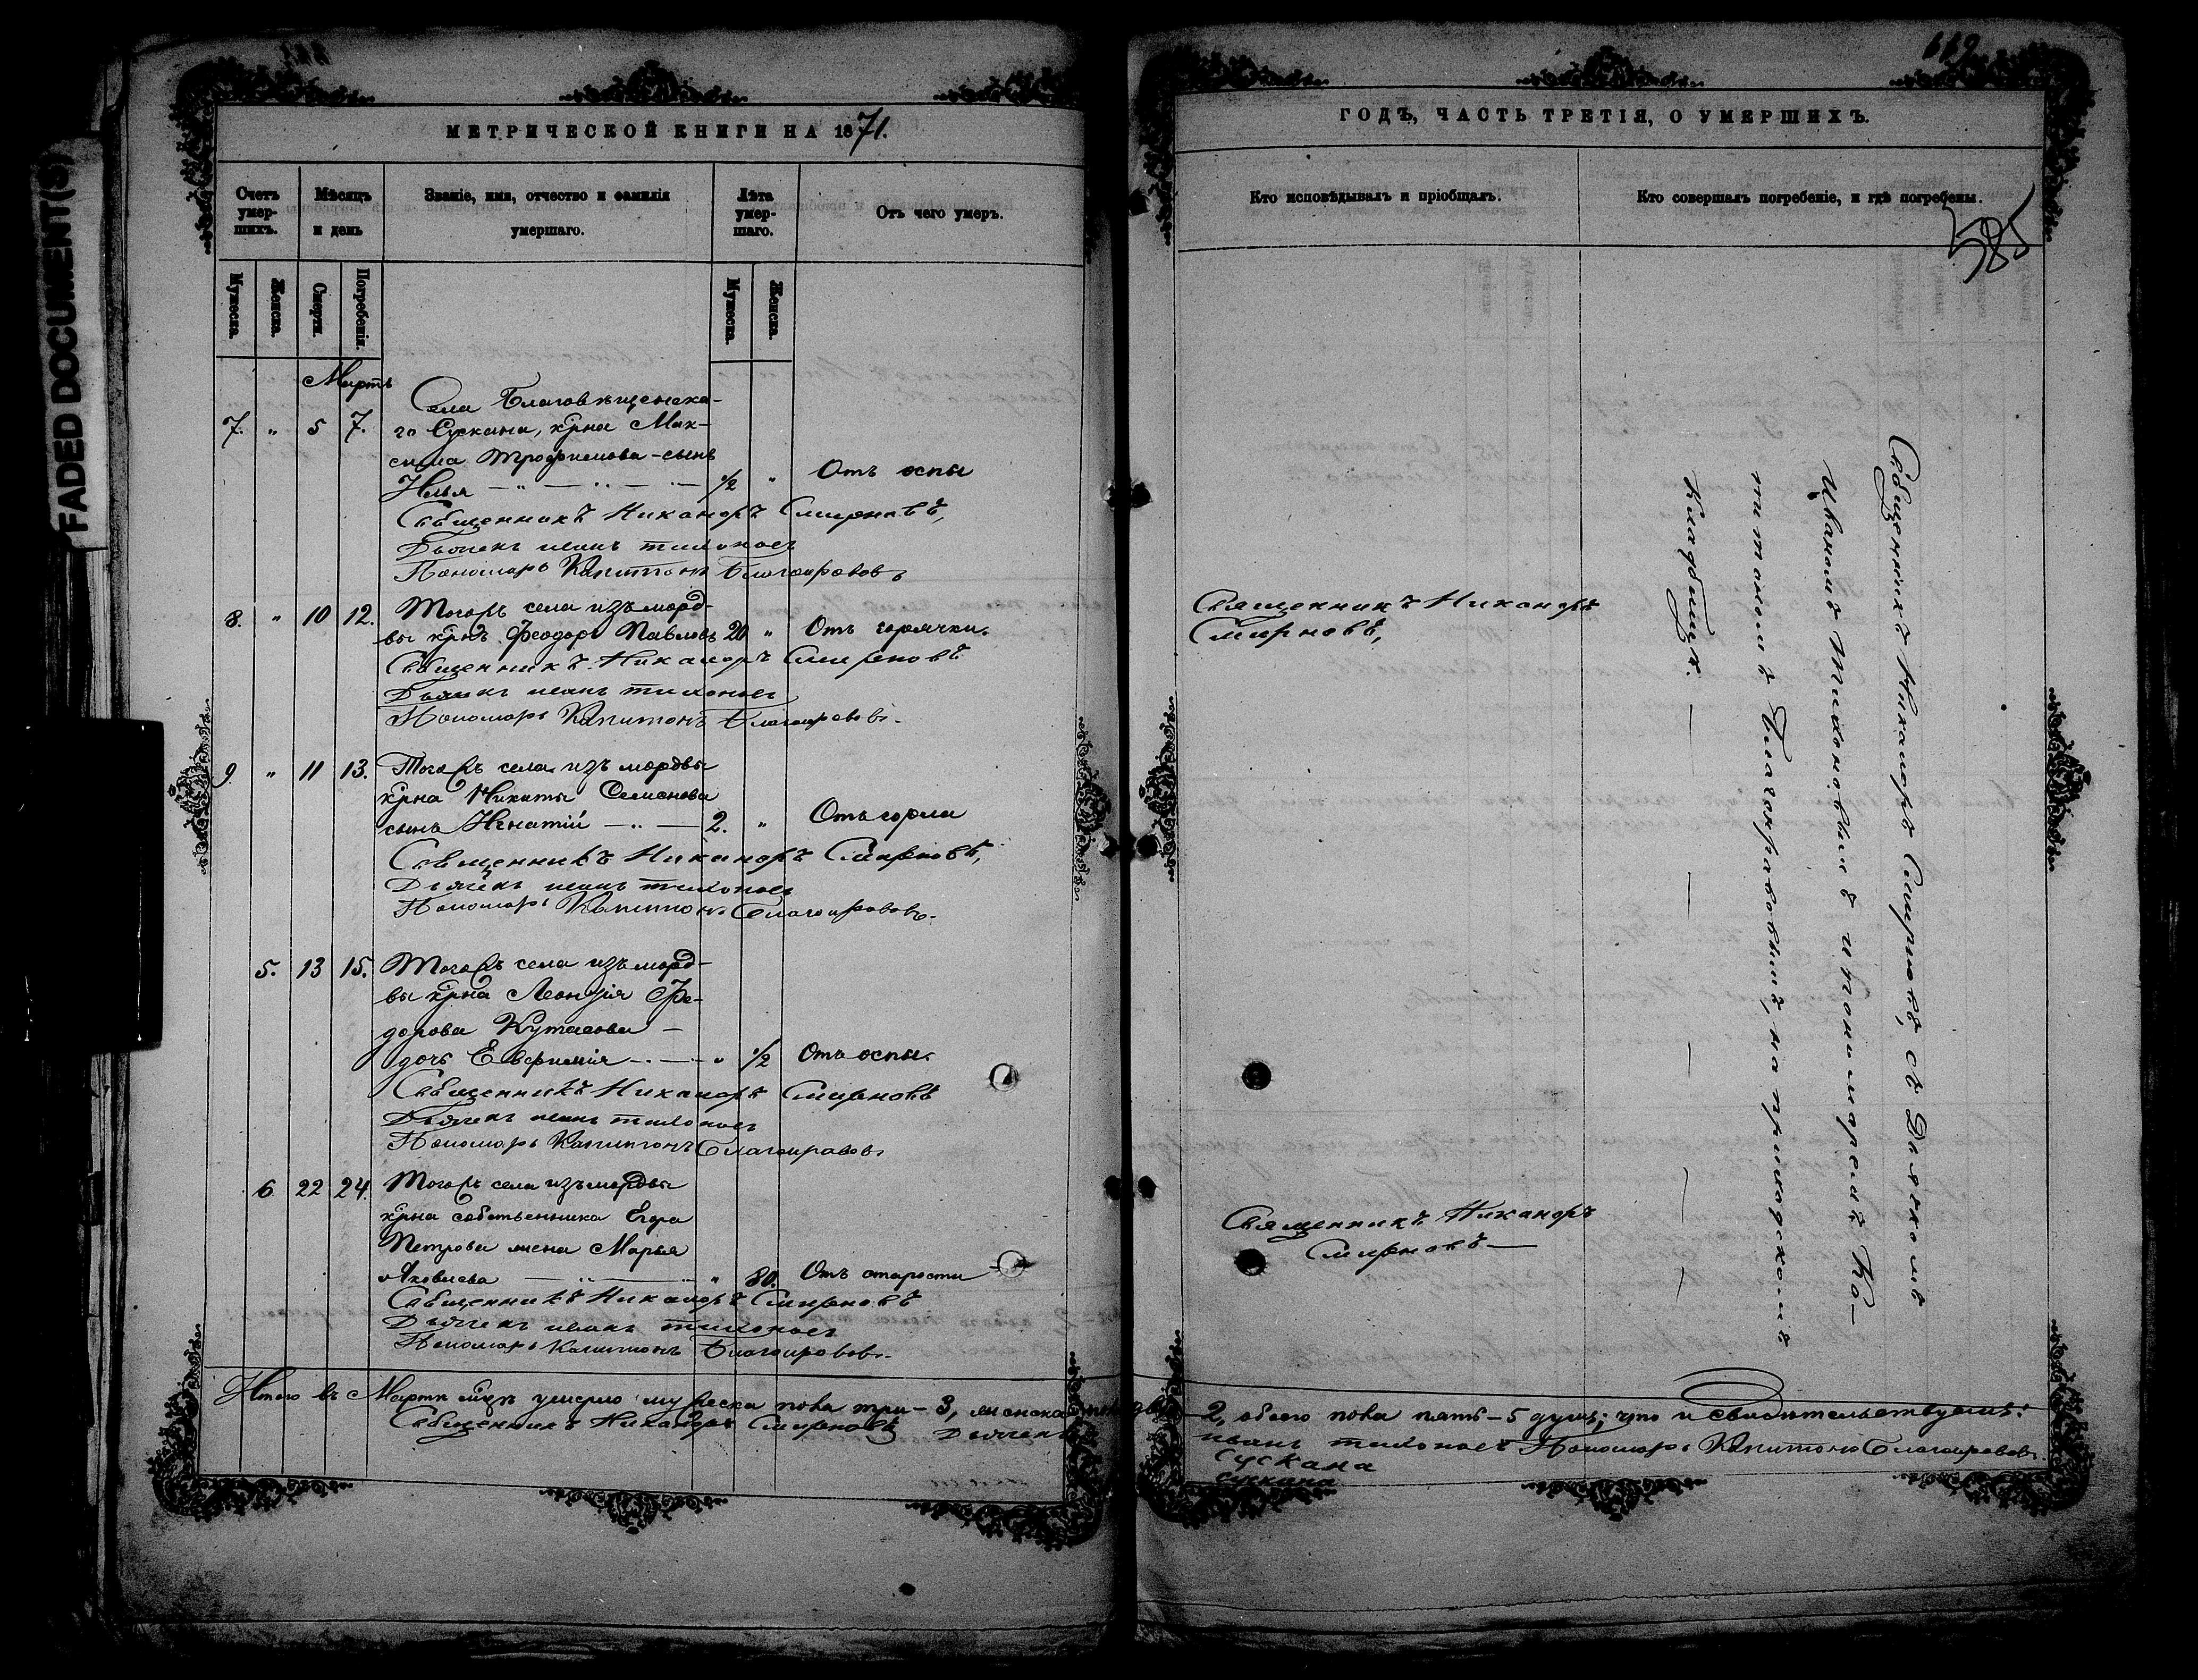 FADED DOCUMENT(S)
МЕТРИЧЕСКОЙ КНИГИ НА 1871.
Счетъ умер-шихъ.
Мѣсяцъ и день
Званіе, имя, отчество и фамилія умершаго.
Лѣта умер-шаго.
Отъ чего умеръ.
Мужеска.
Женска.
Смерти.
Погребенія.
Мужеска.
Женска.
Мартъ
Села Благовѣщенска-
7. " 5 7. го Сускана, крна Мак-
сима Трофимова - сынъ
Илья 1/2 " Отъ оспы
Священникъ Никаноръ Смирновъ,
Дьячекъ иванъ тихоновъ
Пономарь Капитонъ Благонравовъ
8. " 10 12. Тогожъ села изъ морд-
вы крнъ Феодоръ Павловъ 20 " Отъ горячки.
Священникъ Никаноръ Смирновъ
Дьячекъ иванъ тихоновъ
Пономарь Капитонъ Благонравовъ.
9 " 11 13. Тогожъ села изъ мордвы
крна Никиты Семенова
сынъ Игнатій 2. " Отъ горла
Священникъ Никаноръ Смирновъ,
Дьячекъ иванъ тихоновъ
Пономарь Капитонъ Благонравовъ.
5. 13 15. Тогожъ села изъ морд-
вы крна Леонтія Фе-
дорова Кутасова -
дочь Евфимія " 1/2 Отъ оспы.
Священникъ Никаноръ Смирновъ
Дьячекъ иванъ тихоновъ
Пономарь Капитонъ Благонравовъ.
6 22 24. Тогожъ села изъ мордвы
крна собственника Егора
Петрова жена Марья
Яковлева " 80. Отъ старости
Священникъ Никаноръ Смирновъ
Дьячекъ иванъ тихоновъ
Пономарь Капитонъ Благонравовъ.
Итого въ Мартѣ мцѣ умерло мужеска пола три - 3, женска
Священникъ Никаноръ Смирновъ Дьячекъ
ГОДЪ, ЧАСТЬ ТРЕТІЯ, О УМЕРШИХЪ.
Кто исповѣдывалъ и пріобщалъ.
Кто совершалъ погребеніе, и гдѣ погребены.
585
Священникъ Никаноръ
Смирновъ,
Священникъ Никаноръ
Смирновъ
Священникъ Никаноръ Смирновъ, съ Дьячкомъ
Иваномъ Тихоновымъ и пономаремъ Ка-
питономъ Благонравовымъ, на приходскомъ
кладбищѣ.
2, обоего пола пять - 5 душъ; что и свидѣтельствуемъ:
иванъ тихоновъ Пономарь Капитонъ Благонравовъ.
Сускана
Сускана